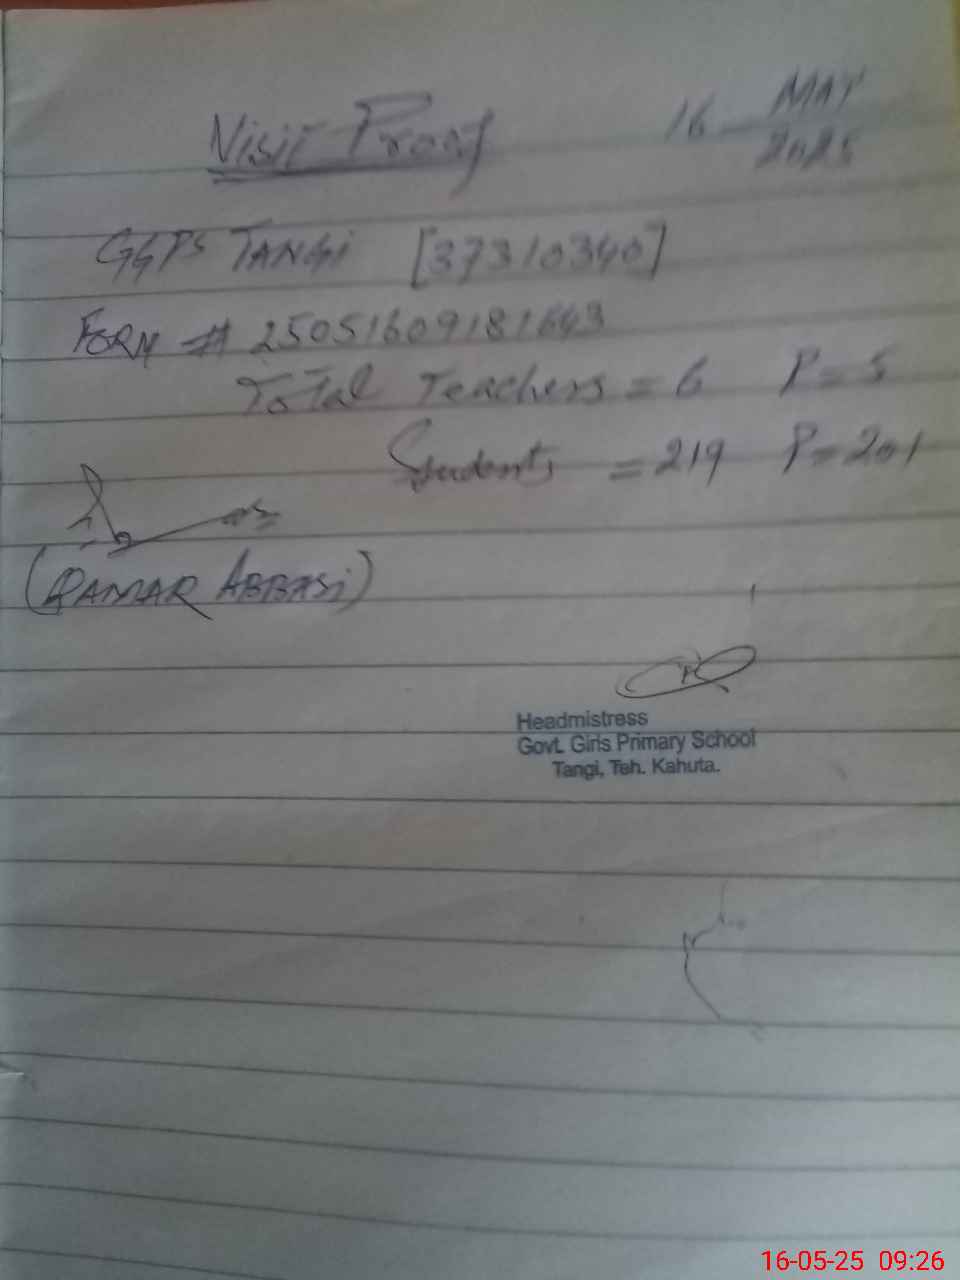 Visit Proof
16 MAY
2025
GGPS TANGI [37310340]
FORM # 25051609181643
Total Teachers = 6 P = 5
Students = 219 P = 201
(QAMAR ABBASI)
Headmistress
Govt. Girls Primary School
Tangi, Teh. Kahuta.
16-05-25 09:26